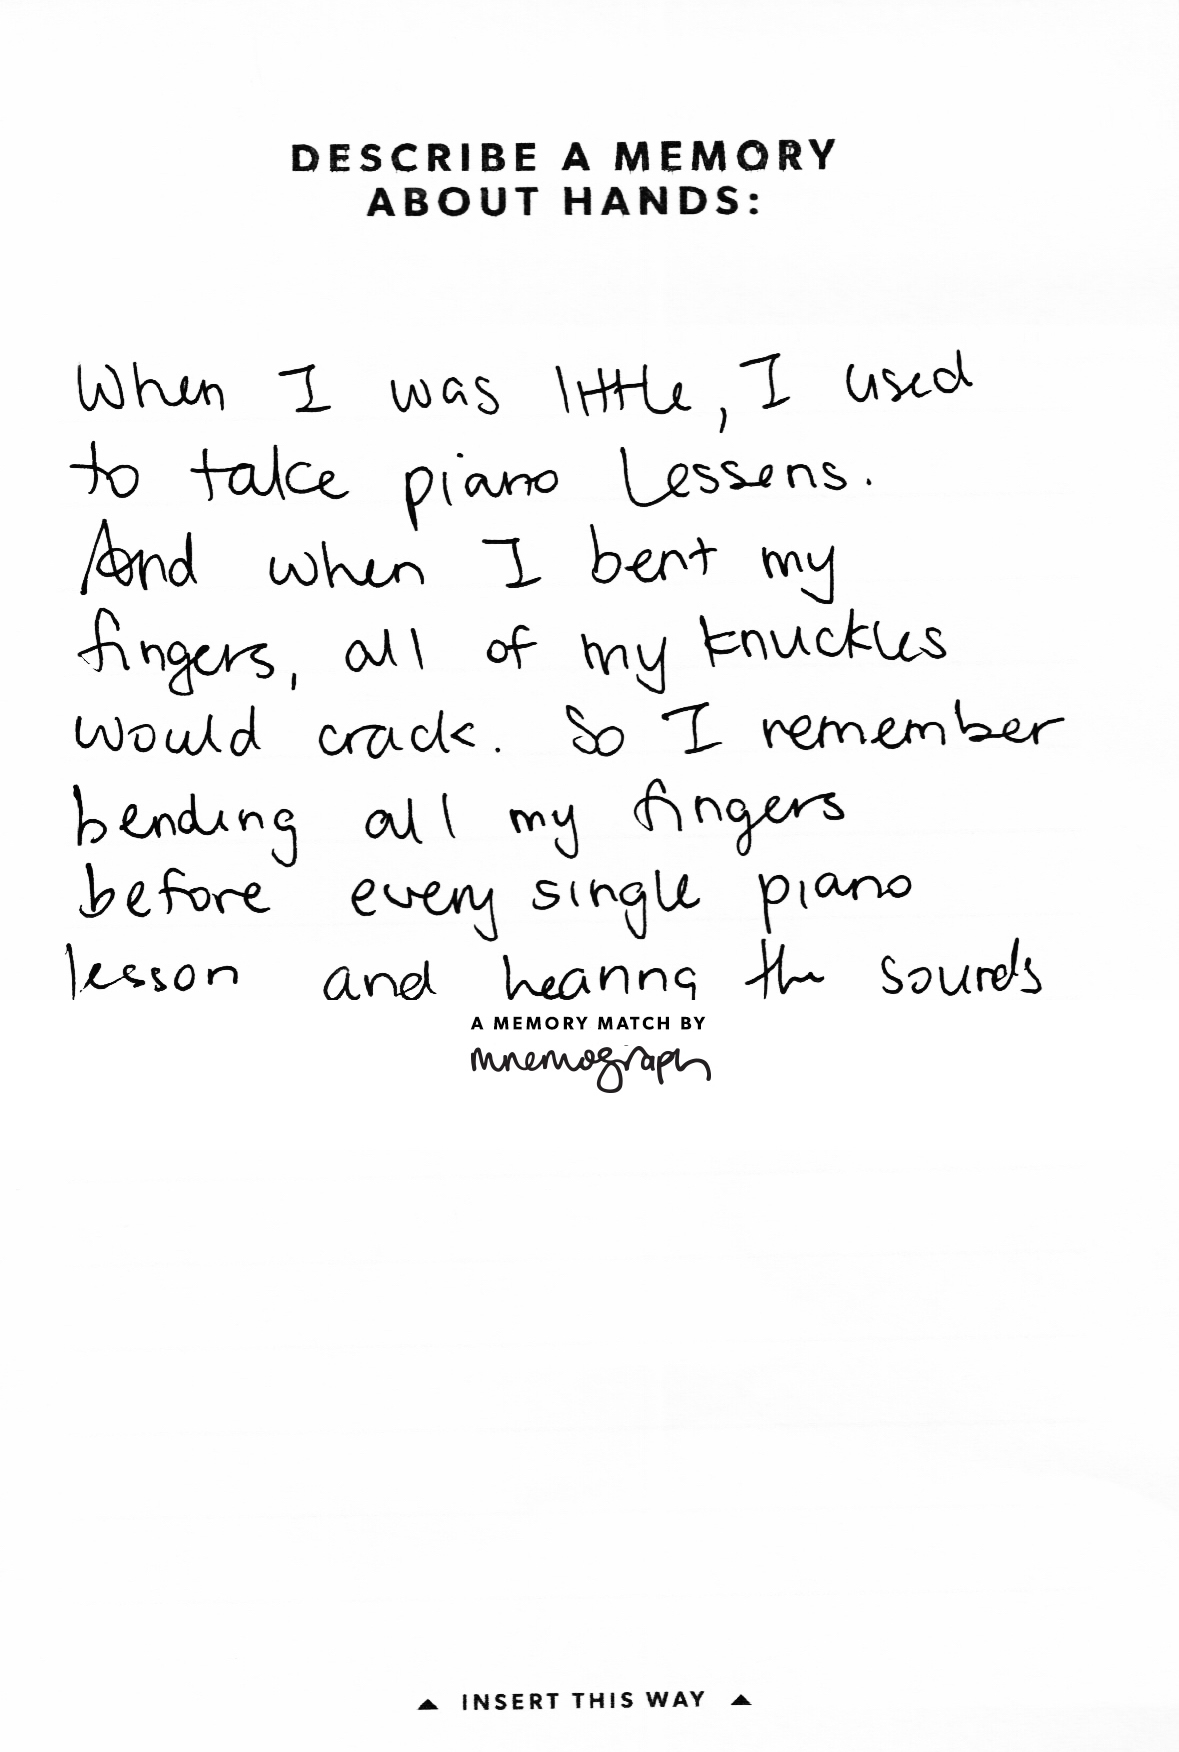 DESCRIBE A MEMORY
ABOUT HANDS:
When I was little, I used
to take piano lessens.
And when I bent my
fingers, all of my knuckles
would crack. So I remember
bending all my fingers
before every single piano
lesson and hearing the sounds
A MEMORY MATCH BY
mnemograph
▲ INSERT THIS WAY ▲